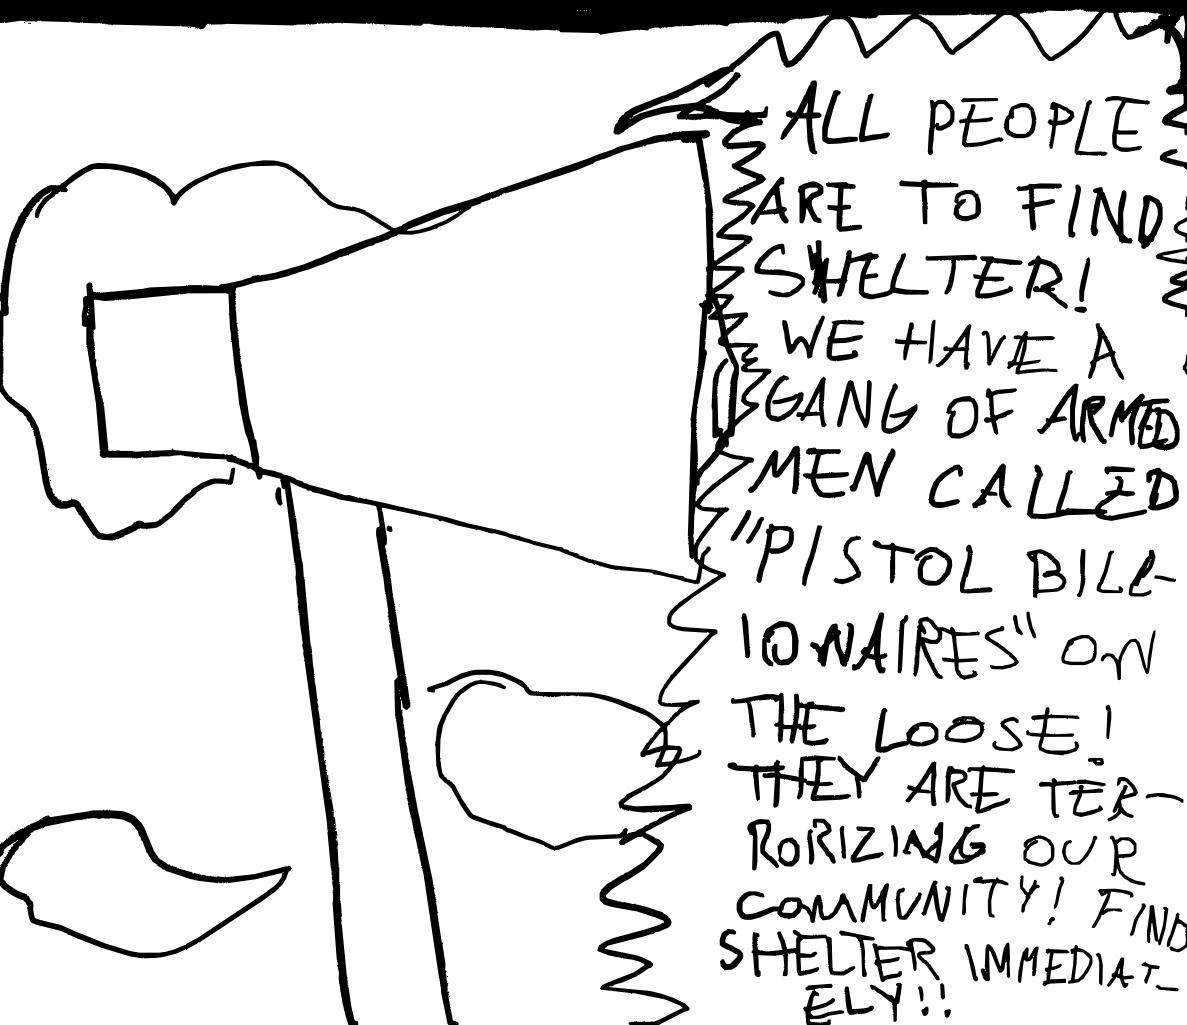 ALL PEOPLE
ARE TO FIND
SHELTER!
WE HAVE A
GANG OF ARMED
MEN CALLED
"PISTOL BILL-
IONAIRES" ON
THE LOOSE!
THEY ARE TER-
RORIZING OUR
COMMUNITY! FIND
SHELTER IMMEDIAT-
ELY!!